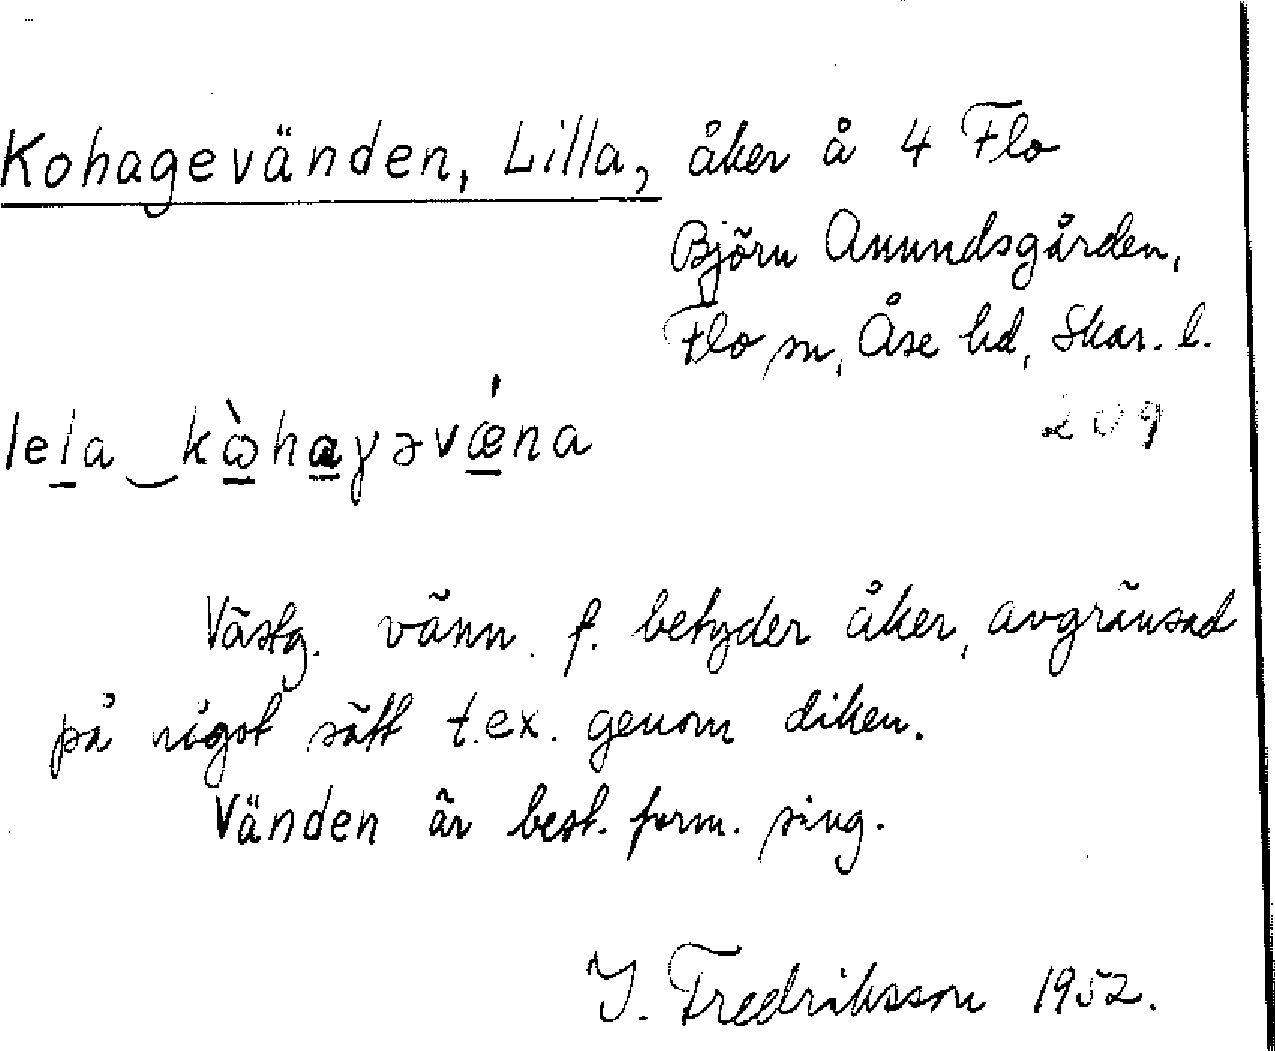 Kohagevänden, Lilla, åker å 4 Flo
Björn Amundsgården,
Flo sn, Åse hd, Skar. l.
lela kòhaɣəvǽna
209
Västg. vänn f. betyder åker, avgränsad
på något sätt t.ex. genom diken.
Vänden är best. form. sing.
I. Fredriksson 1952.